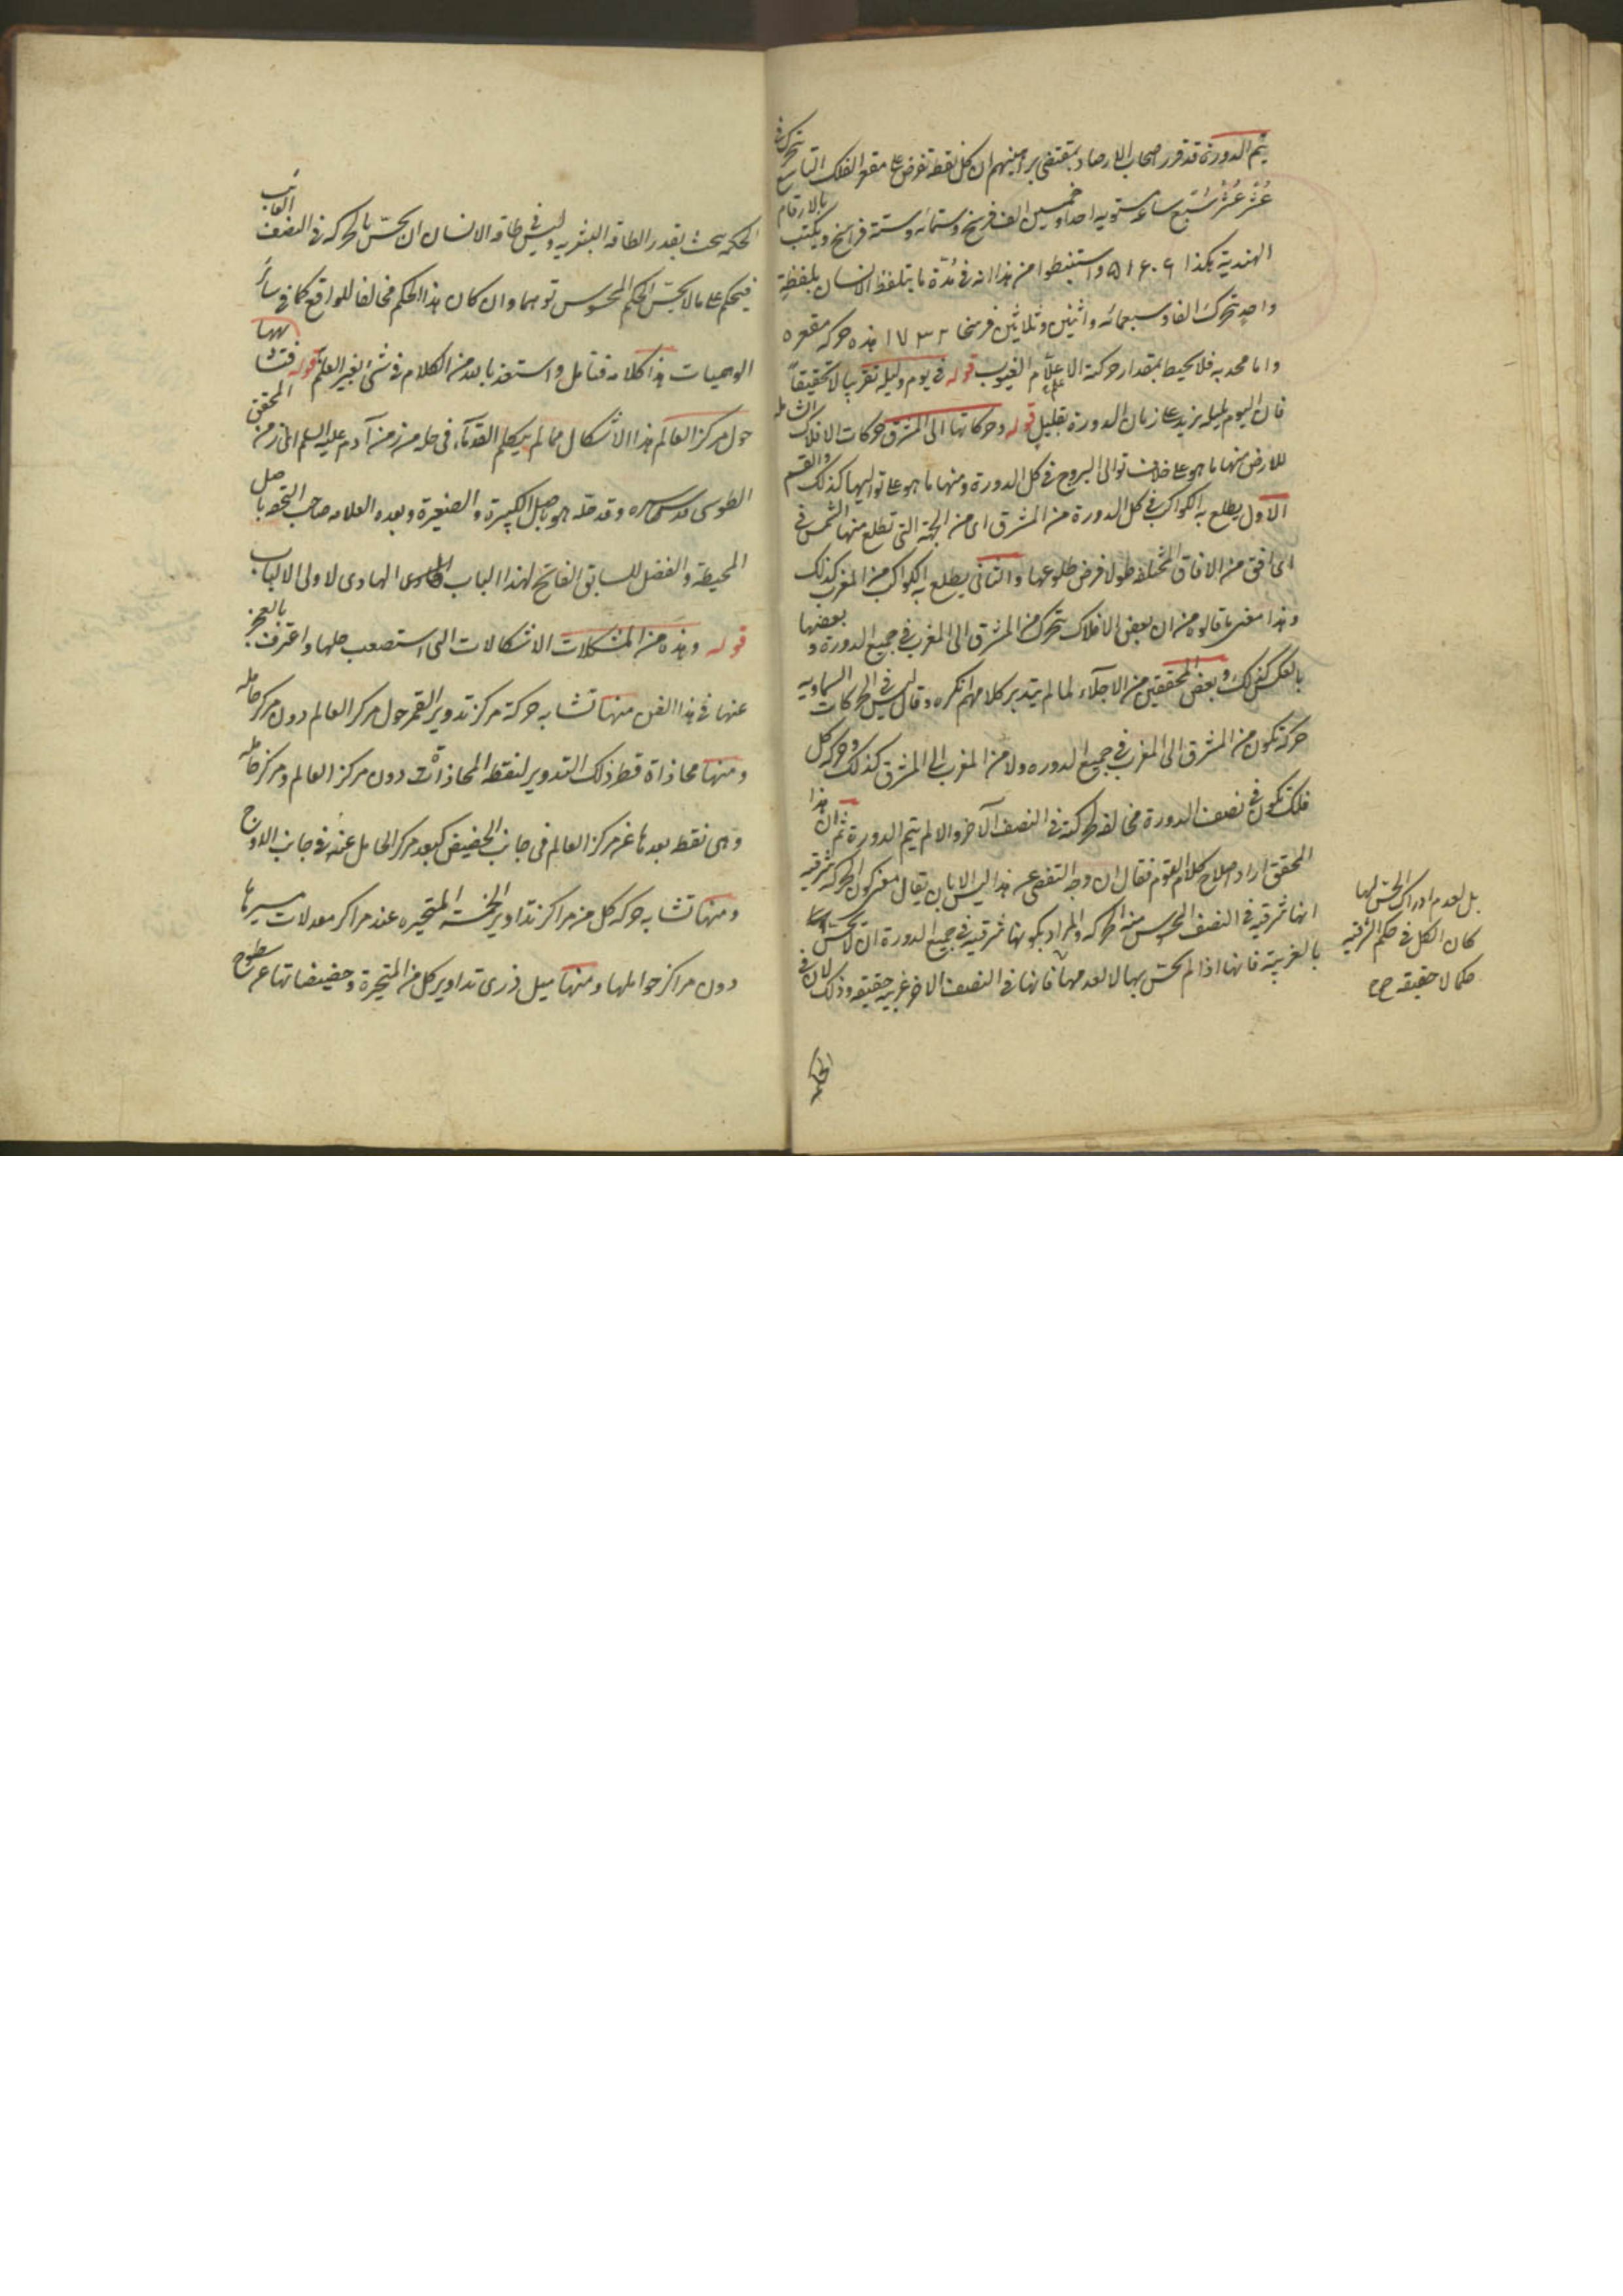 يتم الدورة قد قرر اصحاب الارصاد بمقتضى براهينهم ان كل نقطة تفرض على مقعر الفلك التاسع تتحرك فى
عُشْر عُشْر سُبع ساعة مستوية احدا وخمسين الف فرسخ وستمائه وستة فراسخ ويكتب بالارقام
الهندية هكذا ٥١٦٠٦ واستنبطوا من هذا انه فى مدّة ما يتلفظ الانسان بلفظة
واحدٍ تتحرك الفا وسبعمائه واثنين وثلاثين فرسخا ١٧٣٢ هذه حركة مقعره
واما محدبه فلا يحيط بمقدار حركته الا علّام الغيوب قوله فى يوم وليلة تقريبا لا تحقيقاً
فان اليوم بليله يزيد على زمان الدورة بقليل قوله وحركاتها الى المشرق حركات الافلاك الشامله
للارض منها ما هو على خلاف توالى البروج فى كل الدورة ومنها ما هو على تواليها كذلك والقسم
الاول يطلع به الكواكب فى كل الدورة من المشرق اى من الجهة التى تطلع منها الشمس فى
اى افق من الافاق المختلفة طولا فرض طلوعها والثانى يطلع به الكواكب من المغرب كذلك
وهذا معنى ما قالوه من ان بعض الافلاك تتحرك من المشرق الى المغرب فى جميع الدورة وبعضها
بالعكس كذلك وبعض المحققين من الاجلّاء لما لم يتدبر كلامهم انكره وقال ليس فى الحركات السماوية
حركة تكون من المشرق الى المغرب فى جميع الدوره ولا من المغرب الى المشرق كذلك وحركة كل
فلك تكون فى نصف الدورة مخالفة لحركته فى النصف الآخر والا لم يتم الدورة ثم ان هذا
المحقق اراد اصلاح كلام القوم فقال ان وجه التفصى عن هذا ليس الا بان يقال معنى كون الحركة شرقية
انها شرقية فى النصف المحسوس من الحركة والمراد بكونها شرقية فى جميع الدورة ان لا تحس
بالغربية فانها اذا لم تحس بها لا لعدمها فانها فى النصف الاخر غربية حقيقة وذلك لان فى
بل لعدم ادراك الحس لها
كان الكل فى حكم الشرقية
حكما لا حقيقة صح
الحكمة
الحكمة يبحث بقدر الطاقة البشرية وليس فى طاقة الانسان ان يحسّ بالحركة فى النصف الغائب
فيحكم على ما لا يحسّ الحكم المحسوس توهما وان كان هذا الحكم مخالفا للواقع كما فى سائر
الوهميات هذا كلامه فتأمل واستعذ بالله من الكلام فى شئ بغير العلم قوله فتشابهها
حول مركز العالم هذا الاشكال مما لم يتكلم القدمآء فى حله من زمن آدم عليه السلم الى زمن المحقق
الطوسى قدس سره وقد حله هو باصل الكبيرة والصغيرة وبعده العلامه صاحب التحفه باصل
المحيطة والفضل للسابق الفاتح لهذا الباب الهادى لاولى الالباب
قوله وهذه من المشكلات الاشكالات التى استصعب حلها واعترف بالعجز
عنها فى هذا الفن منها تشابه حركة مركز تدوير القمر حول مركز العالم دون مركز حامله
ومنها محاذاة قطر ذلك التدوير لنقطة المحاذاة دون مركز العالم ومركز حامله
وهى نقطة بعدها عن مركز العالم فى جانب الحضيض كبعد مركز الحامل عنه فى جانب الاوج
ومنها تشابه حركة كل من مراكز تداوير الخمسة المتحيره عند مراكز معدلات مسيرها
دون مراكز حواملها ومنها ميل ذرى تداوير كل من المتحيرة وحضيضاتها عن سطوح